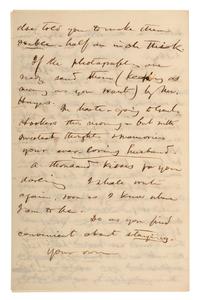 told you to make them
half an inch thick.
If the photographs are
send them (keeping as
many as you want) by Mr.
Hayes. In haste going to
Hookers this morning but with
sweetest thoughts & memories
your ever loving husband.
A thousand kisses for you
darling I shall write
again, soon as I know where
I am to be.
Do as you find
convenient about staying.
Your own